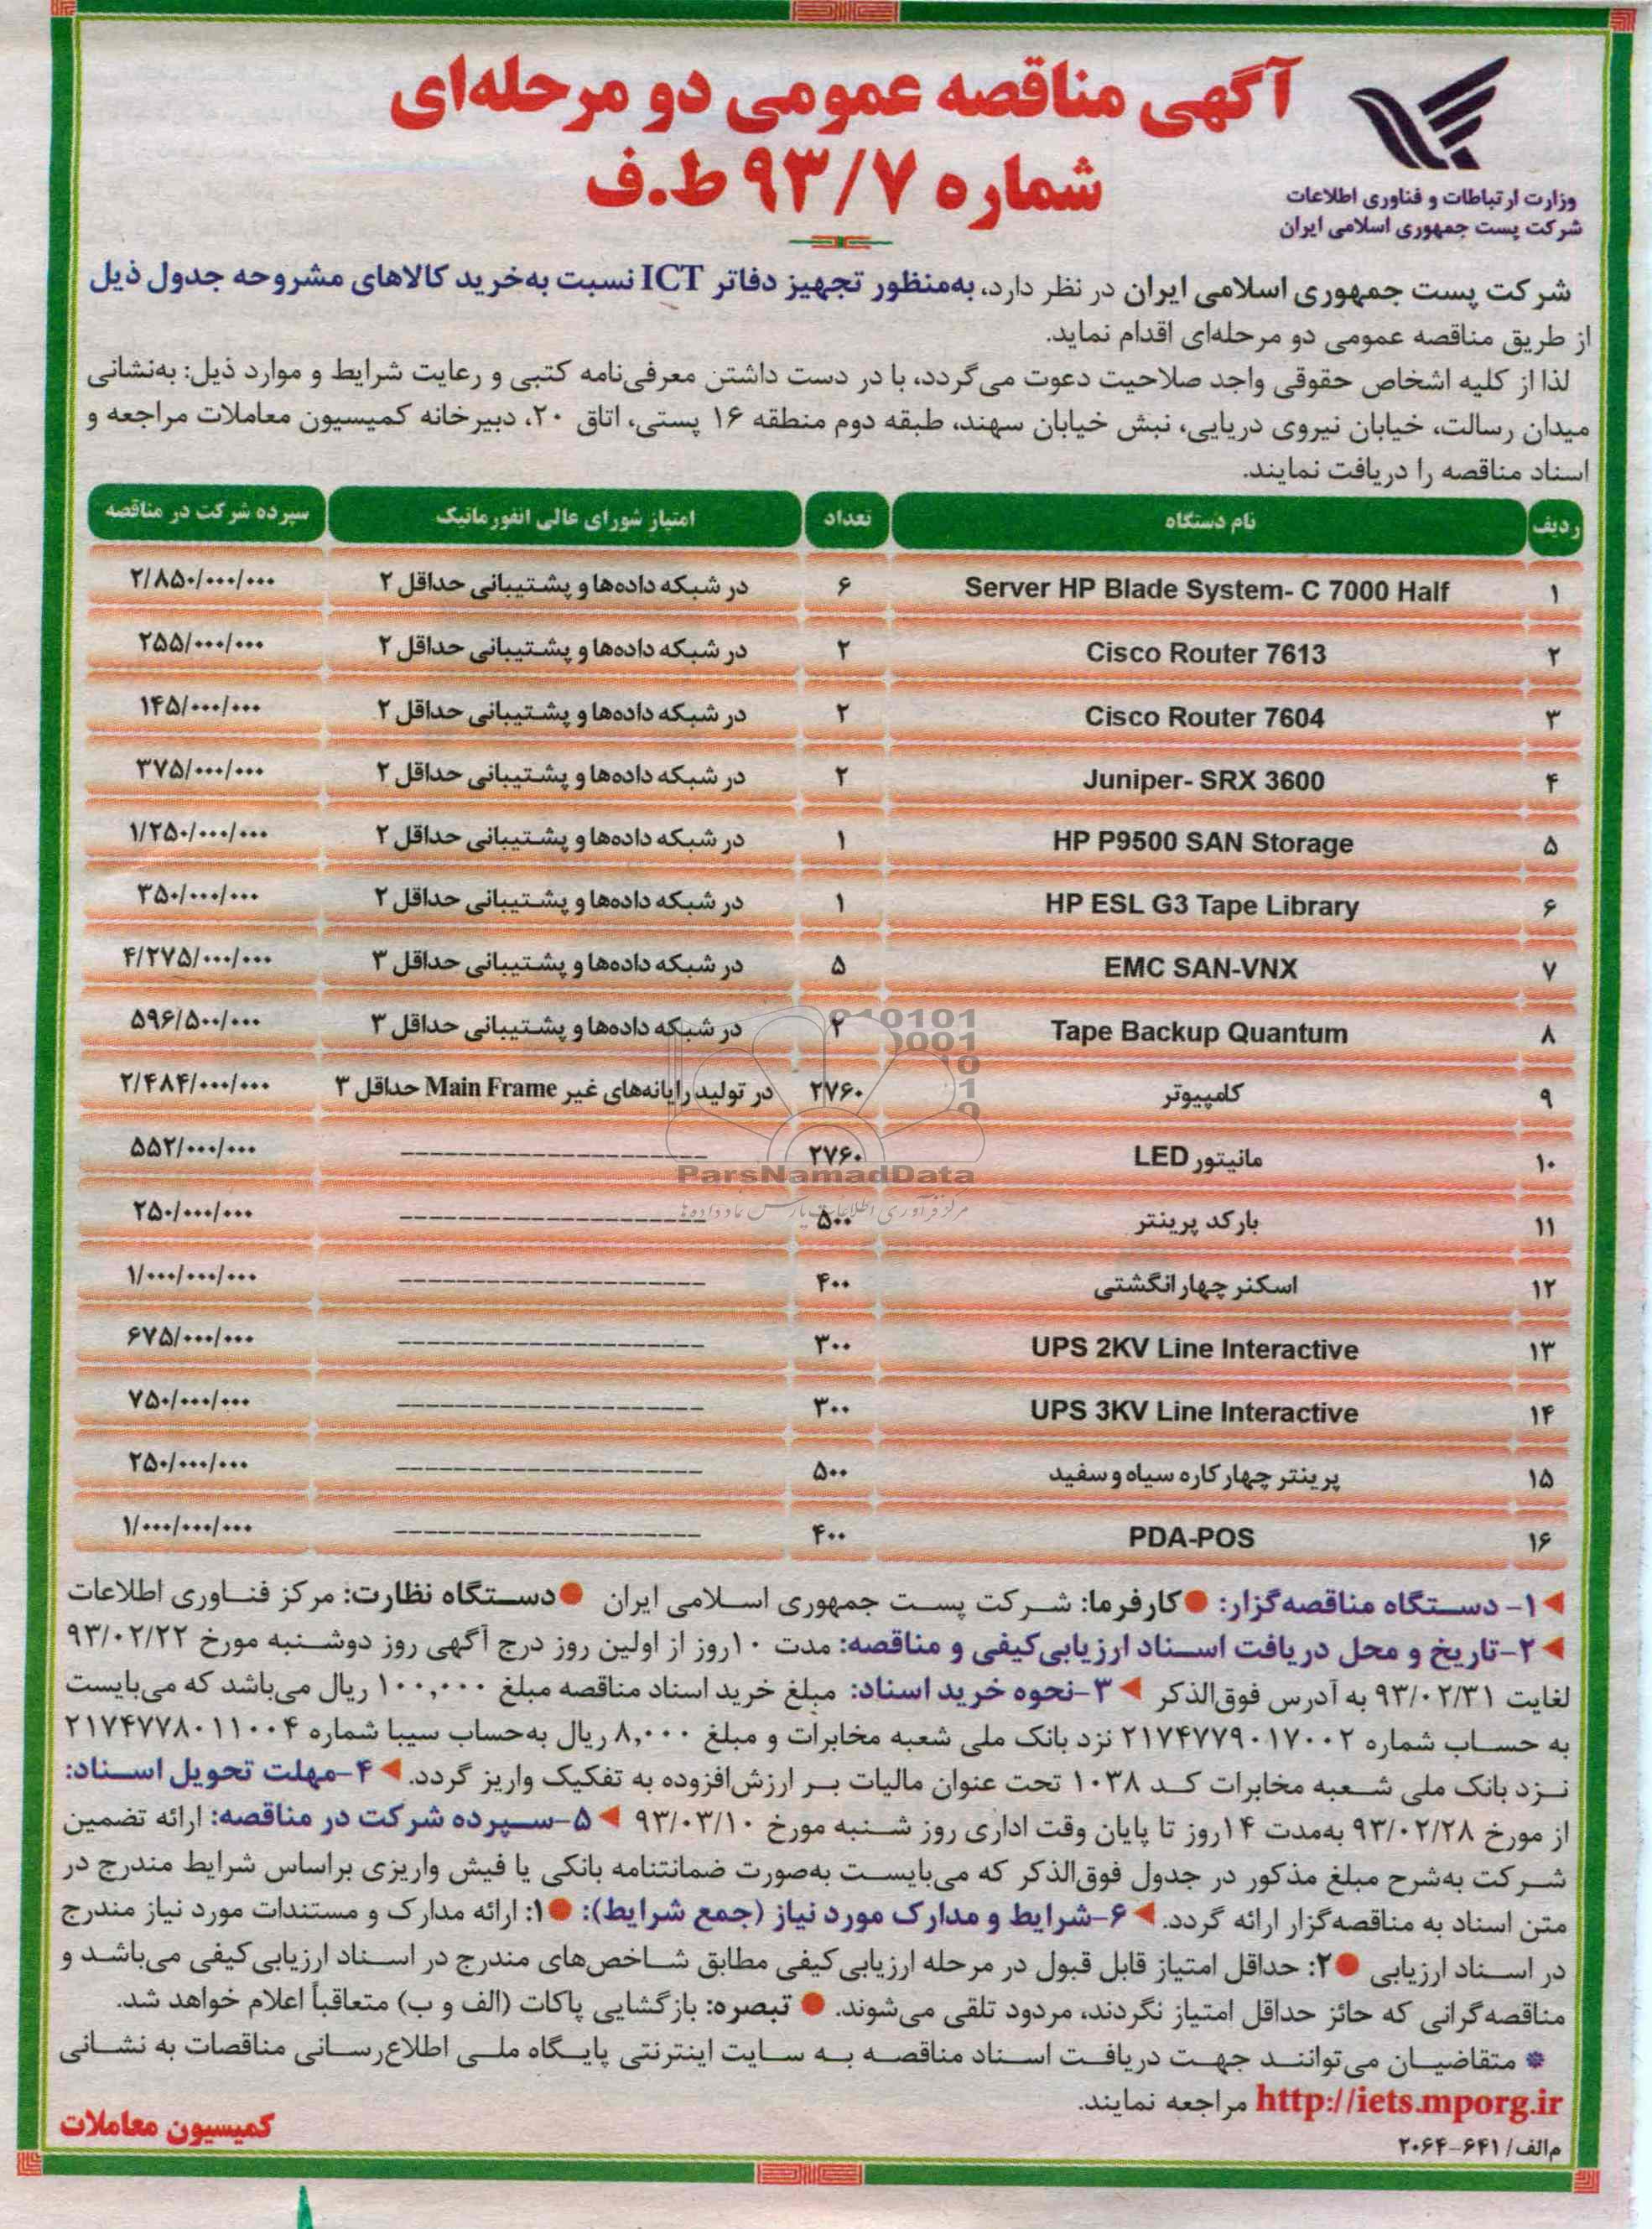 آگهی مناقصه عمومی دو مرحله‌ای
شماره ۹۳/۷ ط.ف
وزارت ارتباطات و فناوری اطلاعات
شرکت پست جمهوری اسلامی ایران
شرکت پست جمهوری اسلامی ایران در نظر دارد، به‌منظور تجهیز دفاتر ICT نسبت به‌خرید کالاهای مشروحه جدول ذیل
از طریق مناقصه عمومی دو مرحله‌ای اقدام نماید.
لذا از کلیه اشخاص حقوقی واجد صلاحیت دعوت می‌گردد، با در دست داشتن معرفی‌نامه کتبی و رعایت شرایط و موارد ذیل: به‌نشانی
میدان رسالت، خیابان نیروی دریایی، نبش خیابان سهند، طبقه دوم منطقه ۱۶ پستی، اتاق ۲۰، دبیرخانه کمیسیون معاملات مراجعه و
اسناد مناقصه را دریافت نمایند.
ردیف نام دستگاه تعداد امتیاز شورای عالی انفورماتیک سپرده شرکت در مناقصه
۱ Server HP Blade System- C 7000 Half ۶ در شبکه داده‌ها و پشتیبانی حداقل ۲ ۲/۸۵۰/۰۰۰/۰۰۰
۲ Cisco Router 7613 ۲ در شبکه داده‌ها و پشتیبانی حداقل ۲ ۲۵۵/۰۰۰/۰۰۰
۳ Cisco Router 7604 ۲ در شبکه داده‌ها و پشتیبانی حداقل ۲ ۱۴۵/۰۰۰/۰۰۰
۴ Juniper- SRX 3600 ۲ در شبکه داده‌ها و پشتیبانی حداقل ۲ ۳۷۵/۰۰۰/۰۰۰
۵ HP P9500 SAN Storage ۱ در شبکه داده‌ها و پشتیبانی حداقل ۲ ۱/۲۵۰/۰۰۰/۰۰۰
۶ HP ESL G3 Tape Library ۱ در شبکه داده‌ها و پشتیبانی حداقل ۲ ۳۵۰/۰۰۰/۰۰۰
۷ EMC SAN-VNX ۵ در شبکه داده‌ها و پشتیبانی حداقل ۳ ۴/۲۷۵/۰۰۰/۰۰۰
۸ Tape Backup Quantum ۲ در شبکه داده‌ها و پشتیبانی حداقل ۳ ۵۹۶/۵۰۰/۰۰۰
۹ کامپیوتر ۲۷۶۰ در تولید رایانه‌های غیر Main Frame حداقل ۳ ۲/۴۸۴/۰۰۰/۰۰۰
۱۰ مانیتور LED ۲۷۶۰ --------------------- ۵۵۲/۰۰۰/۰۰۰
۱۱ بارکد پرینتر ۵۰۰ --------------------- ۲۵۰/۰۰۰/۰۰۰
۱۲ اسکنر چهار انگشتی ۴۰۰ --------------------- ۱/۰۰۰/۰۰۰/۰۰۰
۱۳ UPS 2KV Line Interactive ۳۰۰ --------------------- ۶۷۵/۰۰۰/۰۰۰
۱۴ UPS 3KV Line Interactive ۳۰۰ --------------------- ۷۵۰/۰۰۰/۰۰۰
۱۵ پرینتر چهار کاره سیاه و سفید ۵۰۰ --------------------- ۲۵۰/۰۰۰/۰۰۰
۱۶ PDA-POS ۴۰۰ --------------------- ۱/۰۰۰/۰۰۰/۰۰۰
ParsNamadData
مرکز فرآوری اطلاعات پارس نماد داده‌ها
۱- دستگاه مناقصه‌گزار: ● کارفرما: شرکت پست جمهوری اسلامی ایران ● دستگاه نظارت: مرکز فناوری اطلاعات
۲-تاریخ و محل دریافت اسناد ارزیابی‌کیفی و مناقصه: مدت ۱۰روز از اولین روز درج آگهی روز دوشنبه مورخ ۹۳/۰۲/۲۲
لغایت ۹۳/۰۲/۳۱ به آدرس فوق‌الذکر ۳-نحوه خرید اسناد: مبلغ خرید اسناد مناقصه مبلغ ۱۰۰,۰۰۰ ریال می‌باشد که می‌بایست
به حساب شماره ۲۱۷۴۷۷۹۰۱۷۰۰۲ نزد بانک ملی شعبه مخابرات و مبلغ ۸,۰۰۰ ریال به‌حساب سیبا شماره ۲۱۷۴۷۷۸۰۱۱۰۰۴
نزد بانک ملی شعبه مخابرات کد ۱۰۳۸ تحت عنوان مالیات بر ارزش‌افزوده به تفکیک واریز گردد. ۴-مهلت تحویل اسناد:
از مورخ ۹۳/۰۲/۲۸ به‌مدت ۱۴روز تا پایان وقت اداری روز شنبه مورخ ۹۳/۰۳/۱۰ ۵-سپرده شرکت در مناقصه: ارائه تضمین
شرکت به‌شرح مبلغ مذکور در جدول فوق‌الذکر که می‌بایست به‌صورت ضمانتنامه بانکی یا فیش واریزی براساس شرایط مندرج در
متن اسناد به مناقصه‌گزار ارائه گردد. ۶-شرایط و مدارک مورد نیاز (جمع شرایط): ●۱: ارائه مدارک و مستندات مورد نیاز مندرج
در اسناد ارزیابی ●۲: حداقل امتیاز قابل قبول در مرحله ارزیابی‌کیفی مطابق شاخص‌های مندرج در اسناد ارزیابی‌کیفی می‌باشد و
مناقصه‌گرانی که حائز حداقل امتیاز نگردند، مردود تلقی می‌شوند. ● تبصره: بازگشایی پاکات (الف و ب) متعاقباً اعلام خواهد شد.
* متقاضیان می‌توانند جهت دریافت اسناد مناقصه به سایت اینترنتی پایگاه ملی اطلاع‌رسانی مناقصات به نشانی
http://iets.mporg.ir مراجعه نمایند.
کمیسیون معاملات
م‌الف/ ۶۴۱-۲۰۶۴